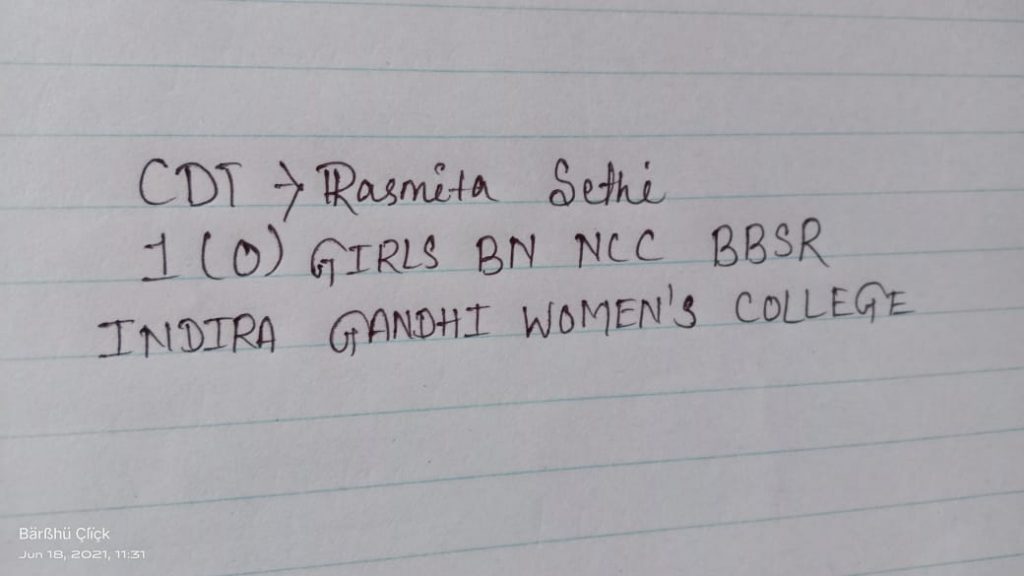 CDT → Rasmita Sethi
1 (O) GIRLS BN NCC BBSR
INDIRA GANDHI WOMEN'S COLLEGE
Bärßhü Çlïçk
Jun 18, 2021, 11:31